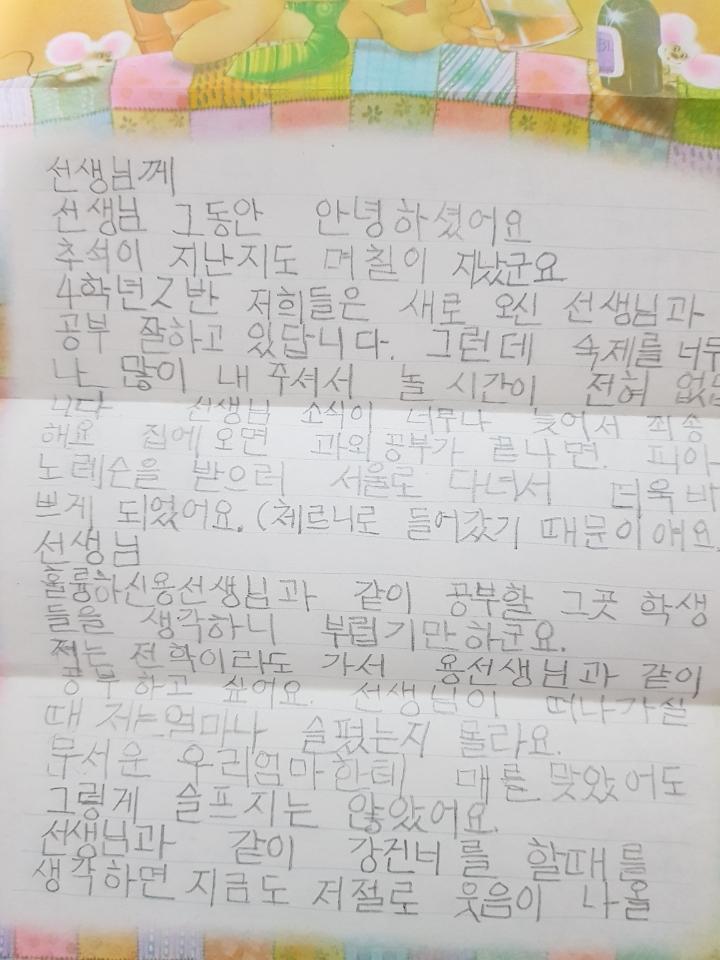 선생님께
선생님 그동안 안녕하셨어요
추석이 지난지도 며칠이 지났군요
4학년 2반 저희들은 새로 오신 선생님과
공부 잘하고 있답니다. 그런데 숙제를 너무
나 많이 내 주셔서 놀 시간이 전혀 없답
니다 선생님 소식이 너무나 늦어서 죄송
해요 집에 오면 과외 공부가 끝나면. 피아-
노 레슨을 받으러 서울로 다녀서 더욱 바
쁘게 되었어요. (체르니로 들어갔기 때문이얘요.
선생님
훌륭하신용선생님과 같이 공부할 그곳 학생
들을 생각하니 부럽기만하군요.
저는 전학이라도 가서 용선생님과 같이
공부하고 싶어요. 선생님이 떠나가실
때 저는얼마나 슬펐는지 몰라요.
무서운 우리엄마한테 매를 맞았어도
그렇게 슬프지는 않았어요.
선생님과 같이 강건너를 할때를
생각하면 지금도 저절로 웃음이 나올